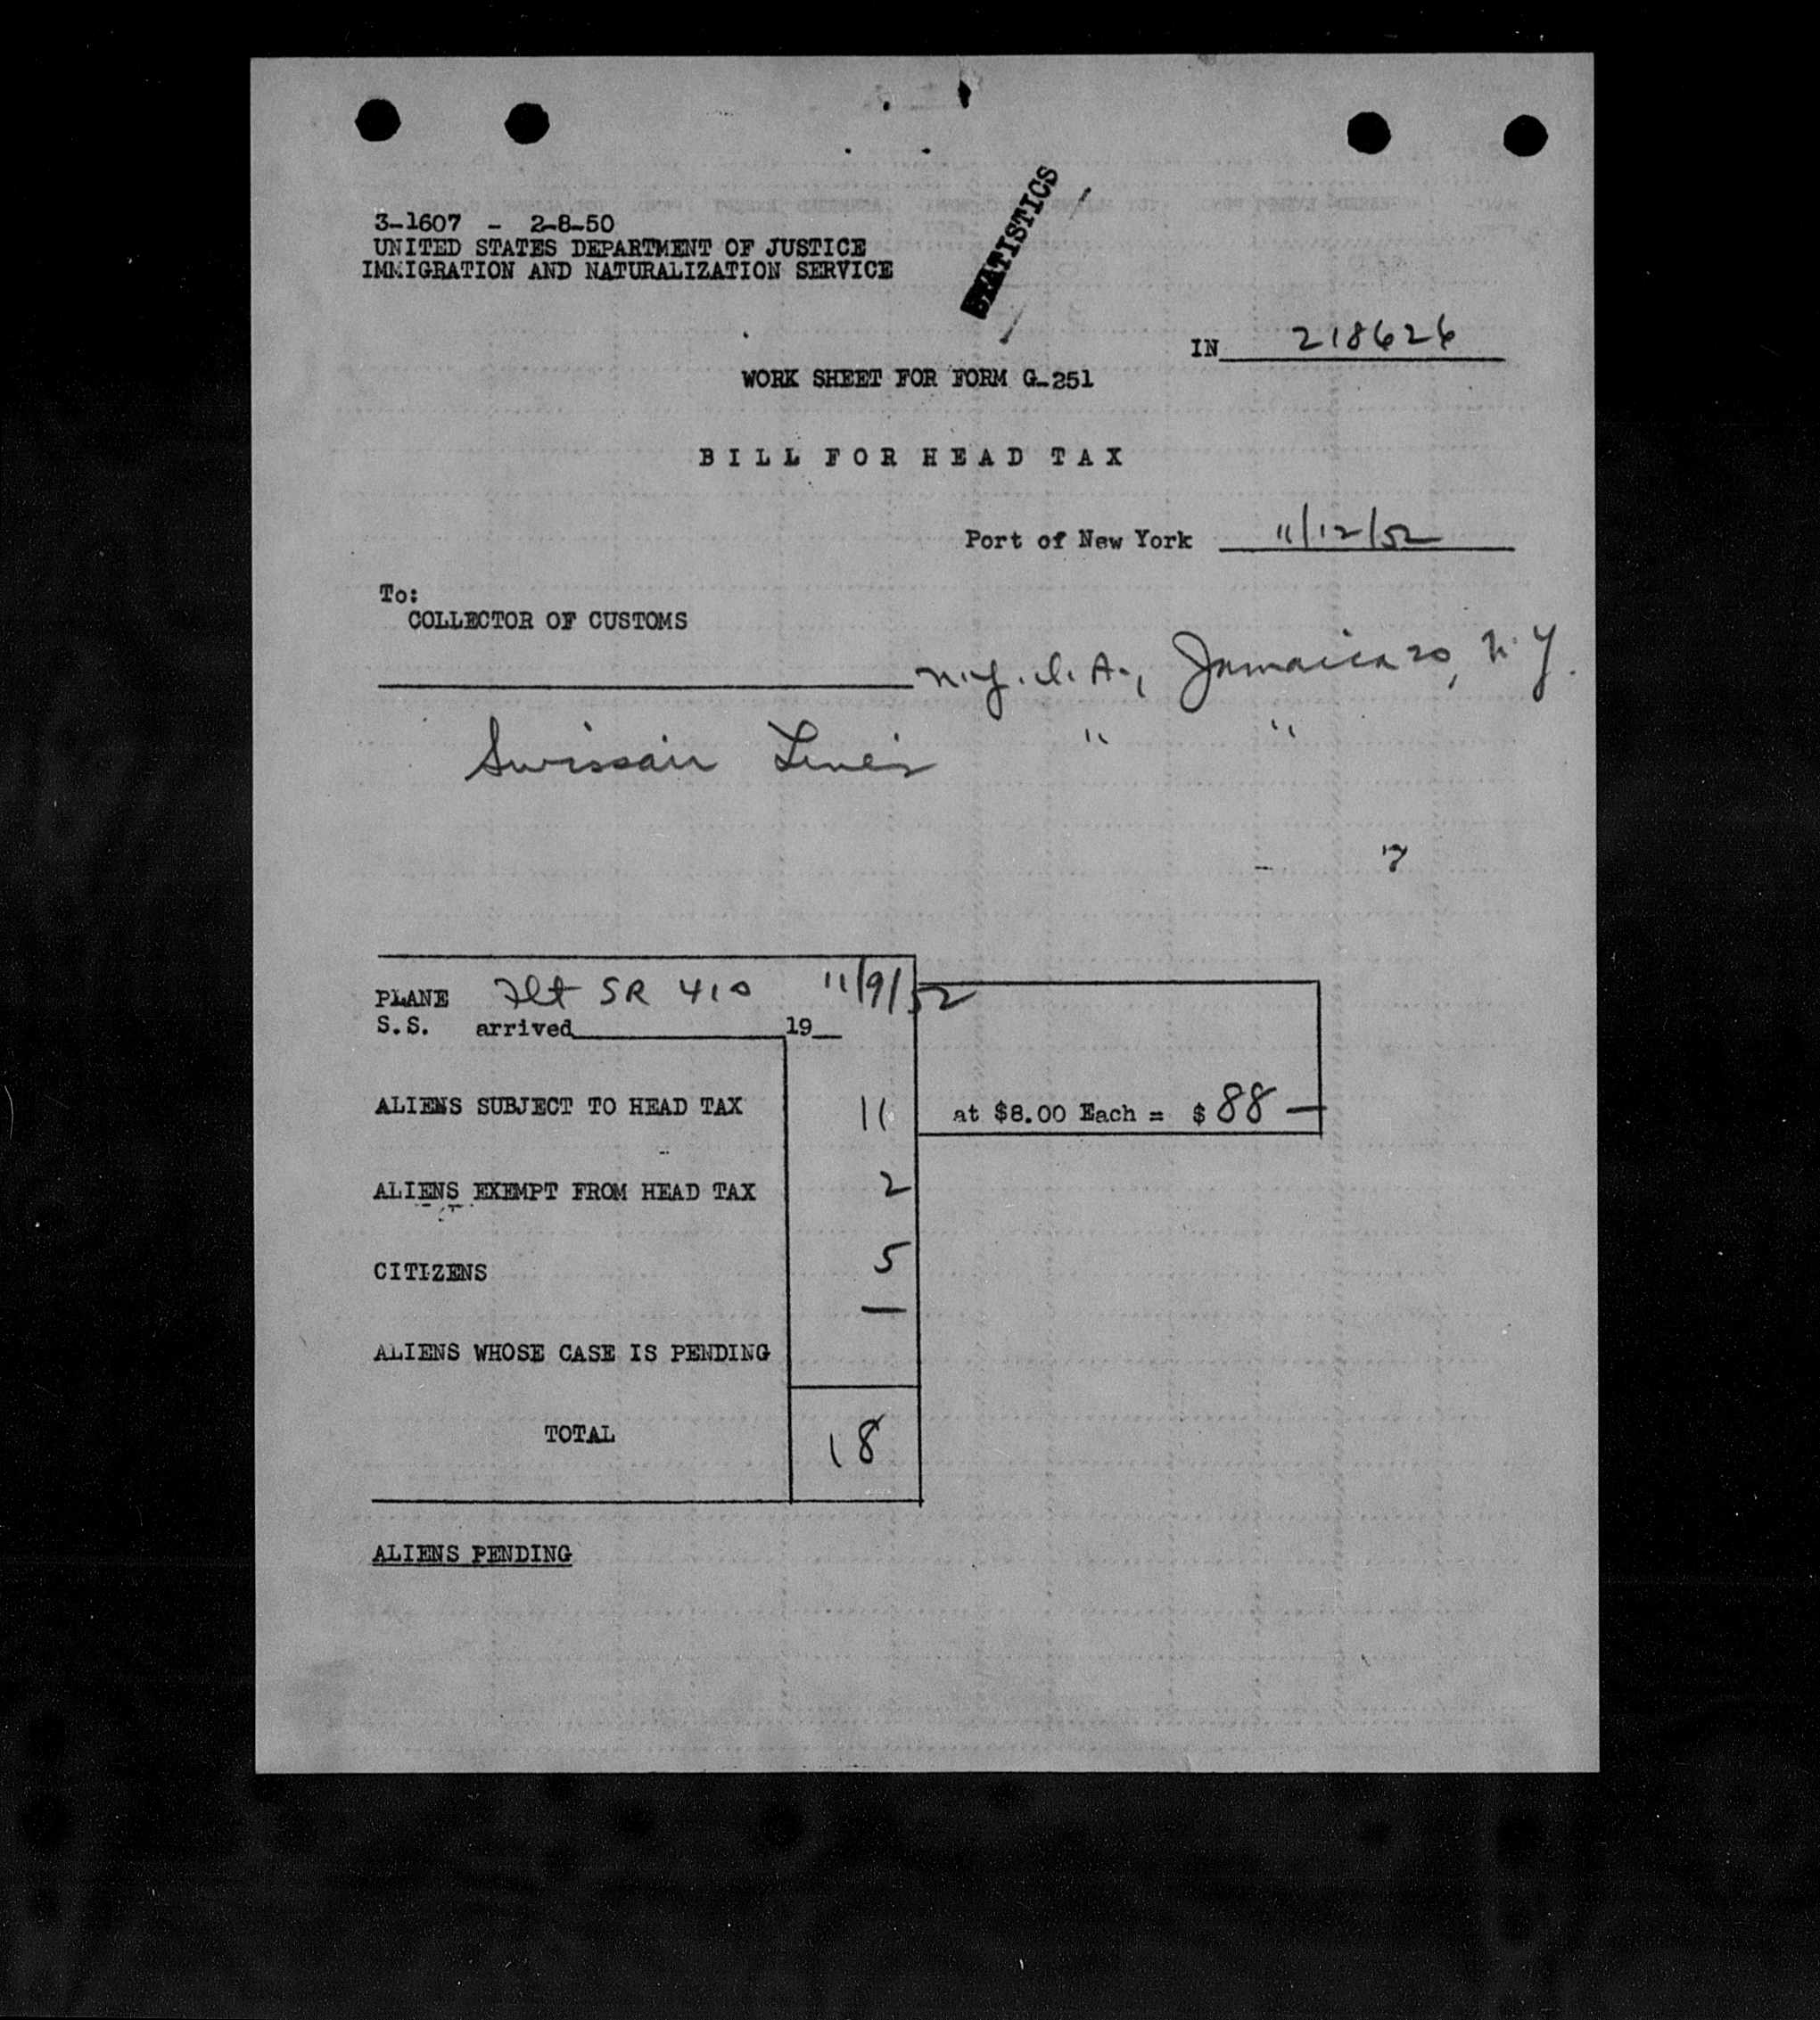 STATISTICS
3-1607 - 2-8-50
UNITED STATES DEPARTMENT OF JUSTICE
IMMIGRATION AND NATURALIZATION SERVICE
IN 218626
WORK SHEET FOR FORM G-251
BILL FOR HEAD TAX
Port of New York 11/12/52
To:
COLLECTOR OF CUSTOMS
N.Y.I.A., Jamaica 20, N.Y.
Swissair Lines " "
PLANE Flt SR 410 11/9/52
S.S. arrived 19
ALIENS SUBJECT TO HEAD TAX 11 at $8.00 Each = $ 88 —
ALIENS EXEMPT FROM HEAD TAX 2
CITIZENS 5
—
ALIENS WHOSE CASE IS PENDING
TOTAL 18
ALIENS PENDING